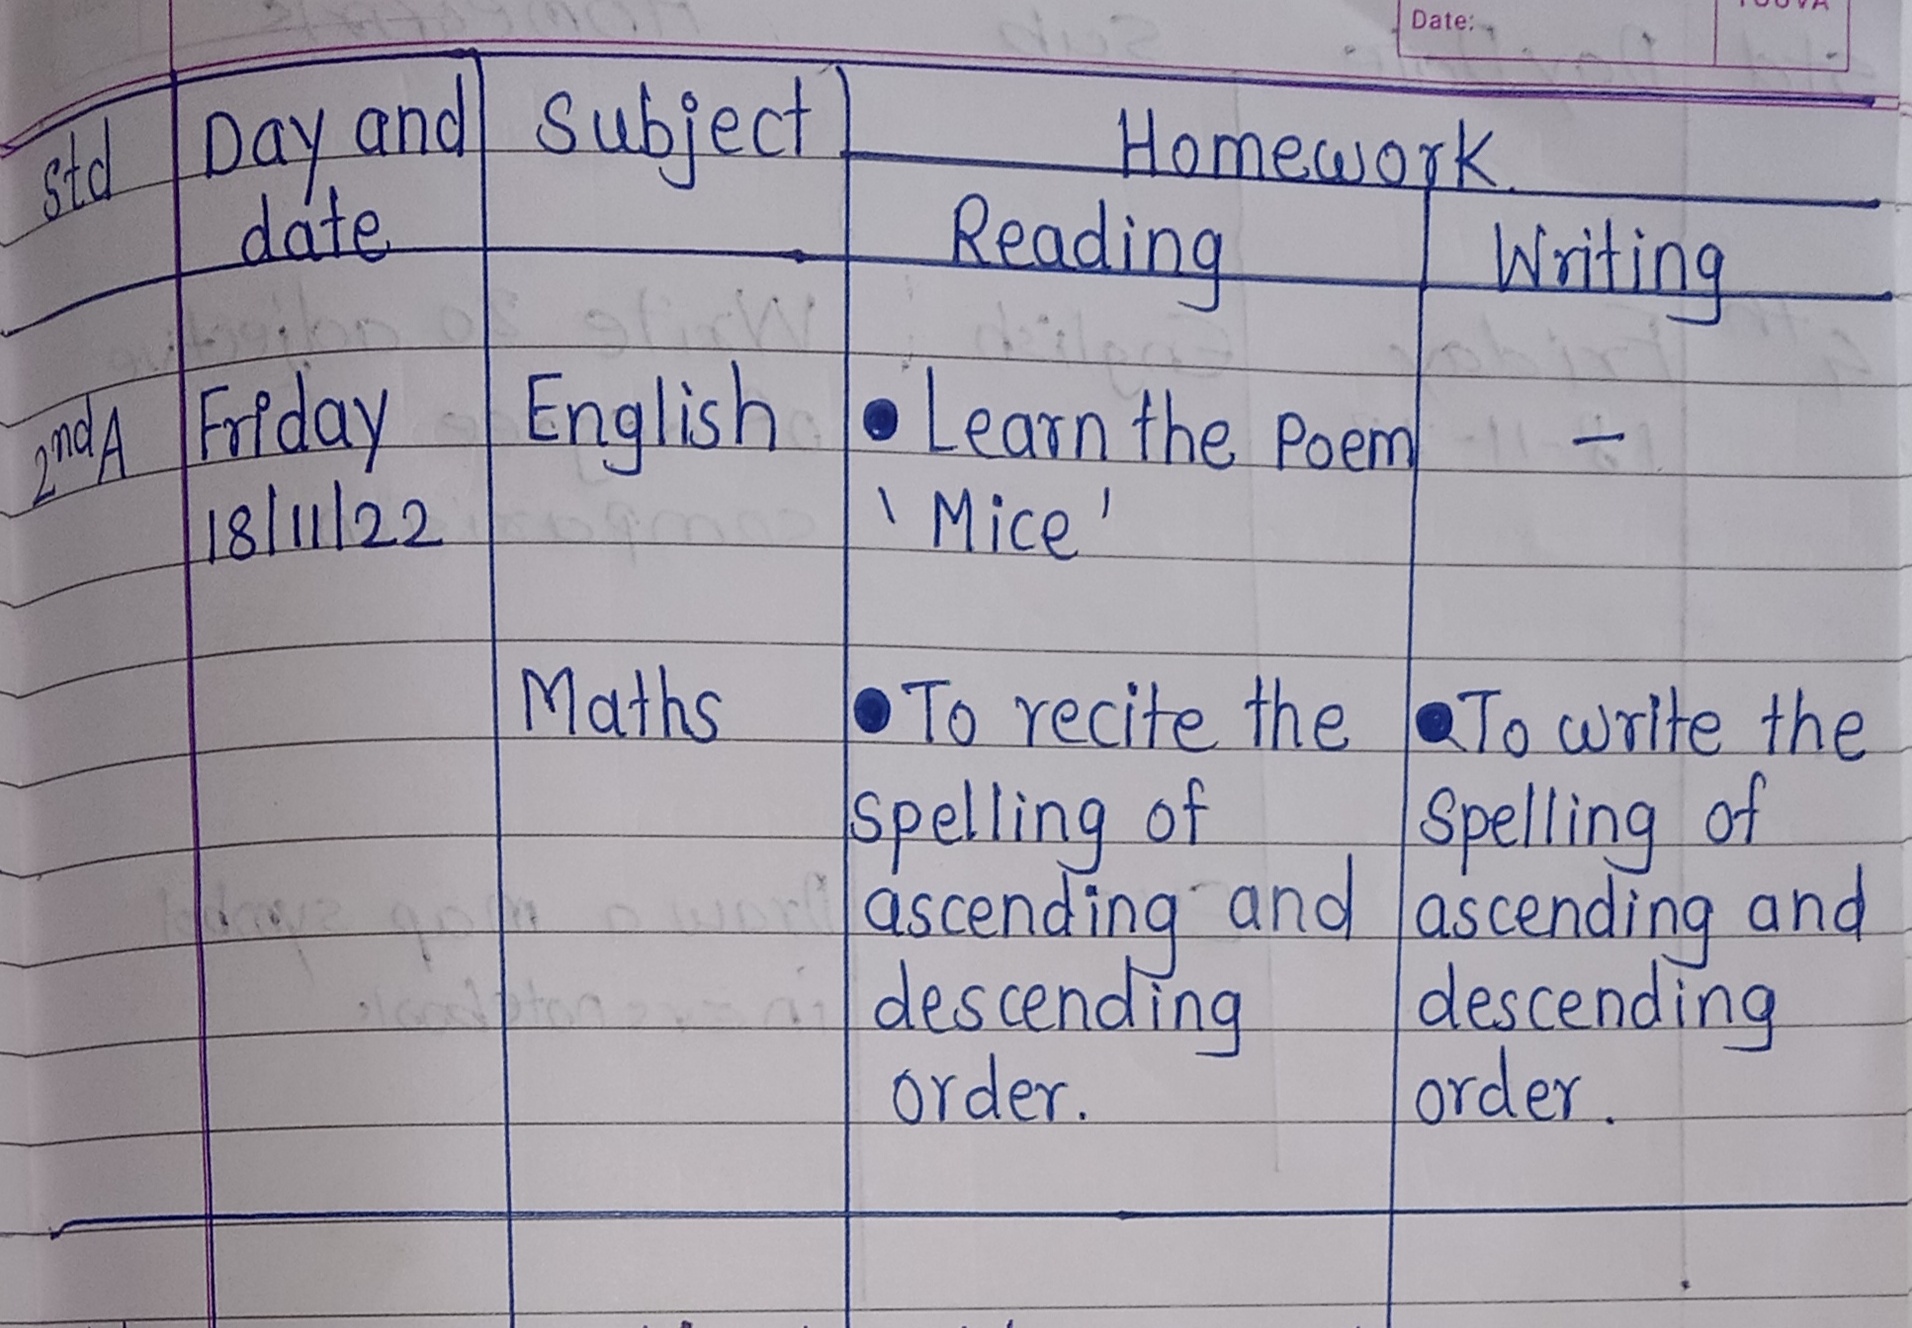 Date:
Std Day and Subject Homework.
date Reading Writing
2nd A Friday English • Learn the Poem ÷
18/11/22 'Mice'
Maths • To recite the • To write the
spelling of Spelling of
ascending and ascending and
descending descending
order. order.